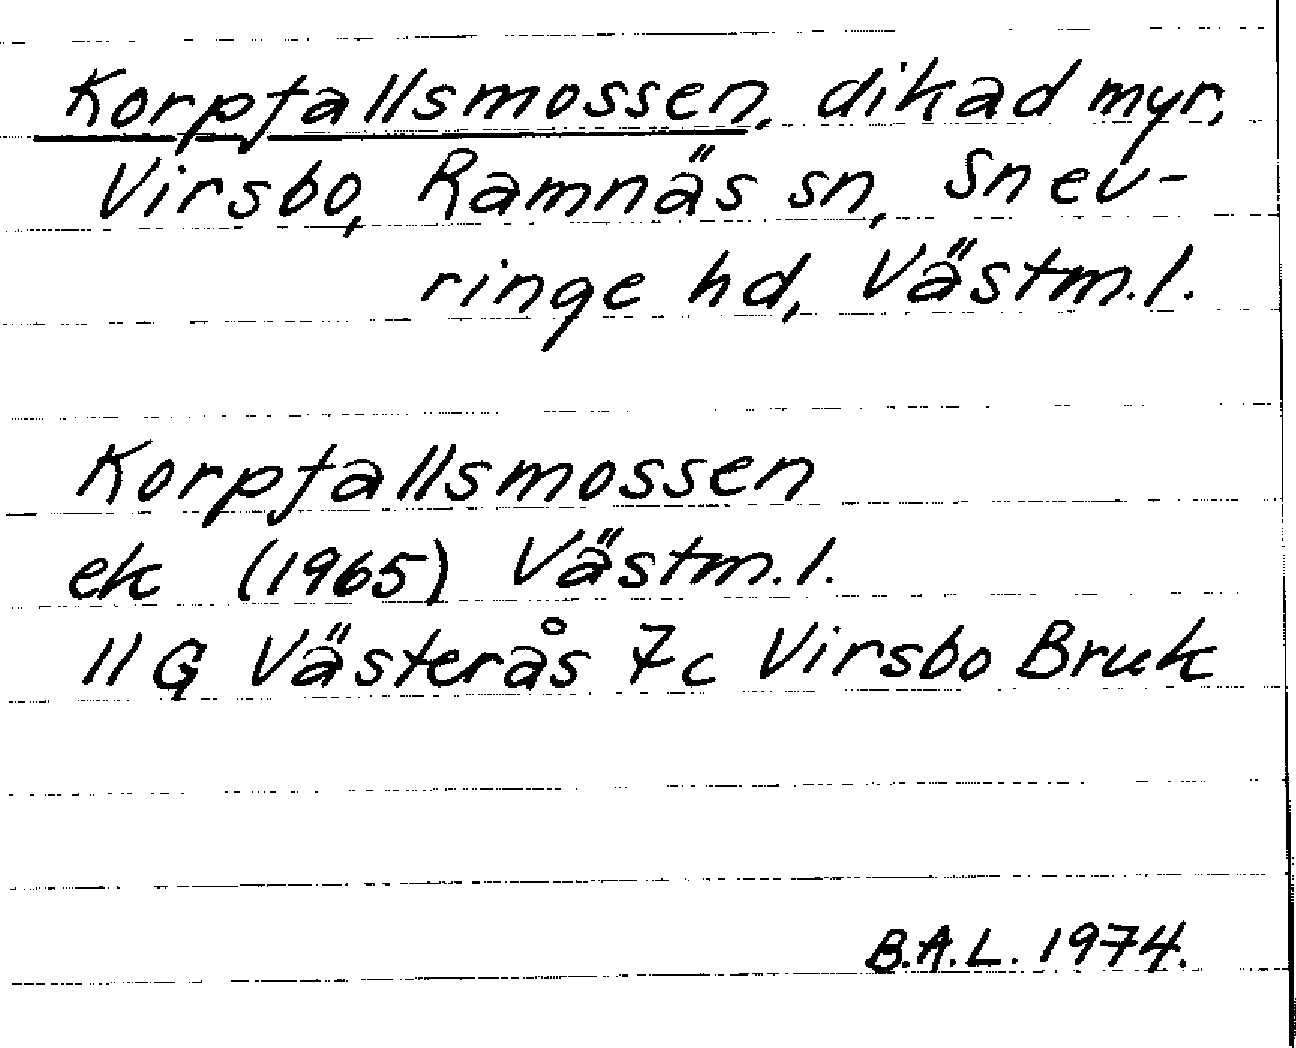 Korpfallsmossen, dikad myr,
Virsbo, Ramnäs sn, Snev-
ringe hd, Västm.l.
Korpfallsmossen
ek (1965) Västm.l.
11 G Västerås 7c Virsbo Bruk
B.A.L. 1974.